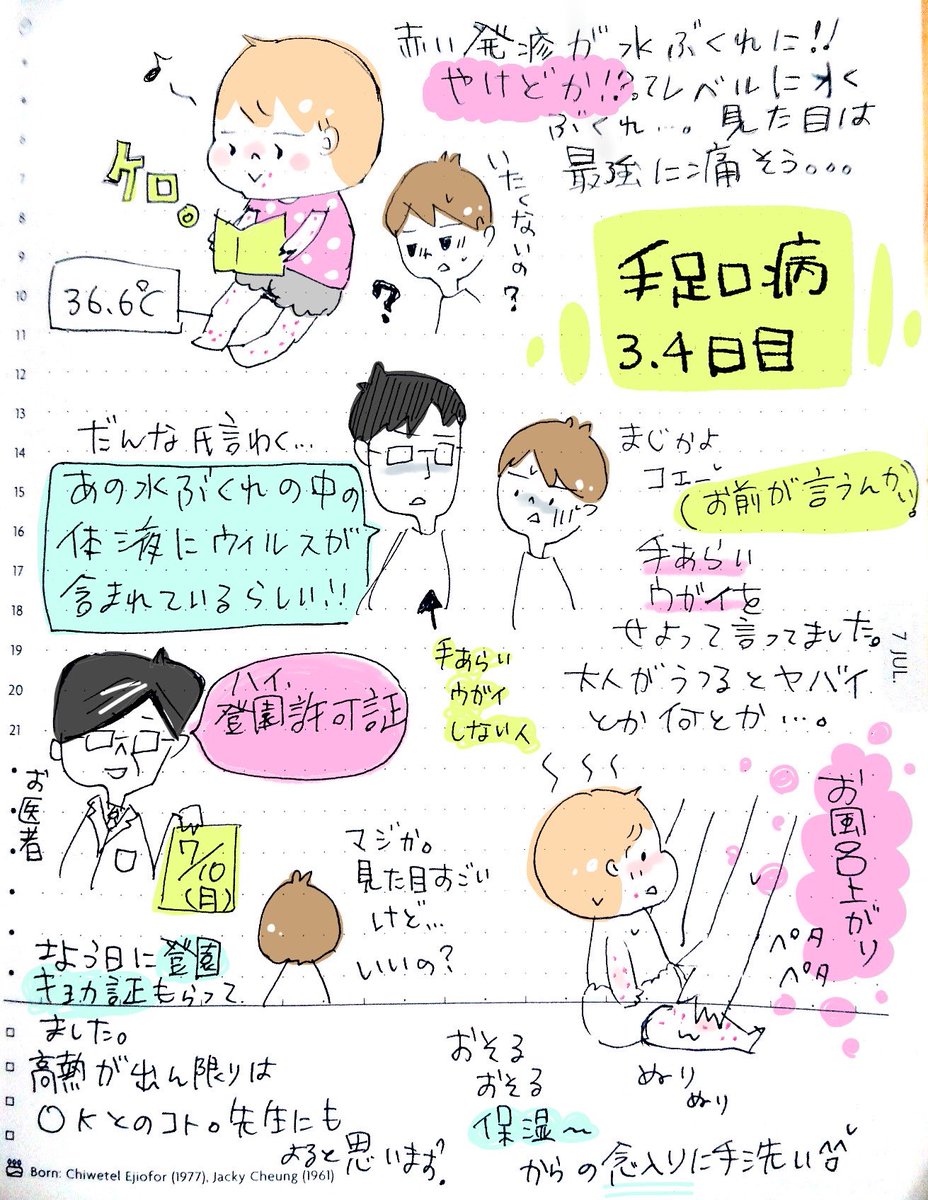 赤い発疹が水ぶくれに!!
やけどか!?ってレベルに水
ぶくれ…。見た目は
最強に痛そう。。。
ケロ。
いたくないの?
?
36.6℃
手足口病
3.4日目
だんな氏言わく…
あの水ぶくれの中の
体液にウィルスが
含まれているらしい!!
まじかよ
コエー
(お前が言うんかい。
手あらい
ウガイを
せよって言ってました。
大人がうつるとヤバイ
とか何とか…。
手あらい
ウガイ
しない人
ハイ、
登園許可証
お医者
7/10
(月)
マジか。
見た目すごい
けど…
いいの?
お風呂上がり
ペタ
ペタ
さよう日に登園
キョカ証もらって
ました。
高熱が出ん限りは
OKとのコト。先生にも
よると思います?
おそる
おそる
保湿〜
からの念入りに手洗い
ぬり
ぬり
7
8
9
10
11
12
13
14
15
16
17
18
19
20
21
7 JUL.
Born: Chiwetel Ejiofor (1977), Jacky Cheung (1961)